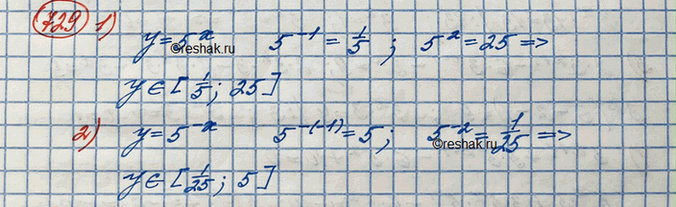 729 1) y = 5^-x   5^-1 = 1/5 ;   5^-2 = 25 =>
©reshak.ru
y ∈ [1/5 ; 25]
2) y = 5^-x   5^-(-1) = 5 ;   5^-2 = 1/25 =>
©reshak.ru
y ∈ [1/25 ; 5]